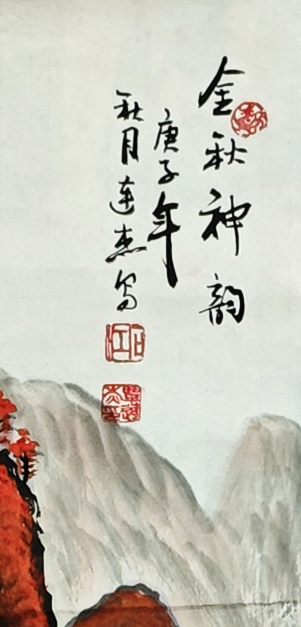 金秋神韵
庚子年
秋月连杰写